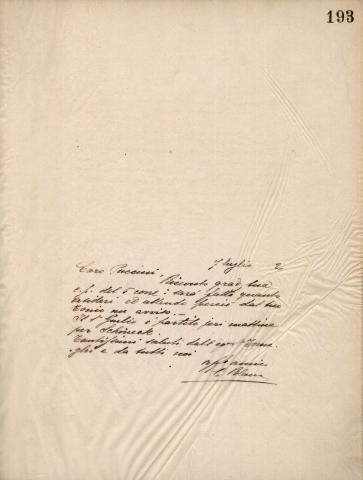 193
7 luglio 2
Caro Puccini,
Ricevuto grad. tua
c.p. del 5 corr: sarà fatto quanto
desideri ed attendo perciò dal tuo
Tonio un avviso. —
Il Sr Giulio è partito jeri mattina
per Schöneck.
Tantissimi saluti dal Torna
ghi e da tutti noi
aff amico
C. Blanc